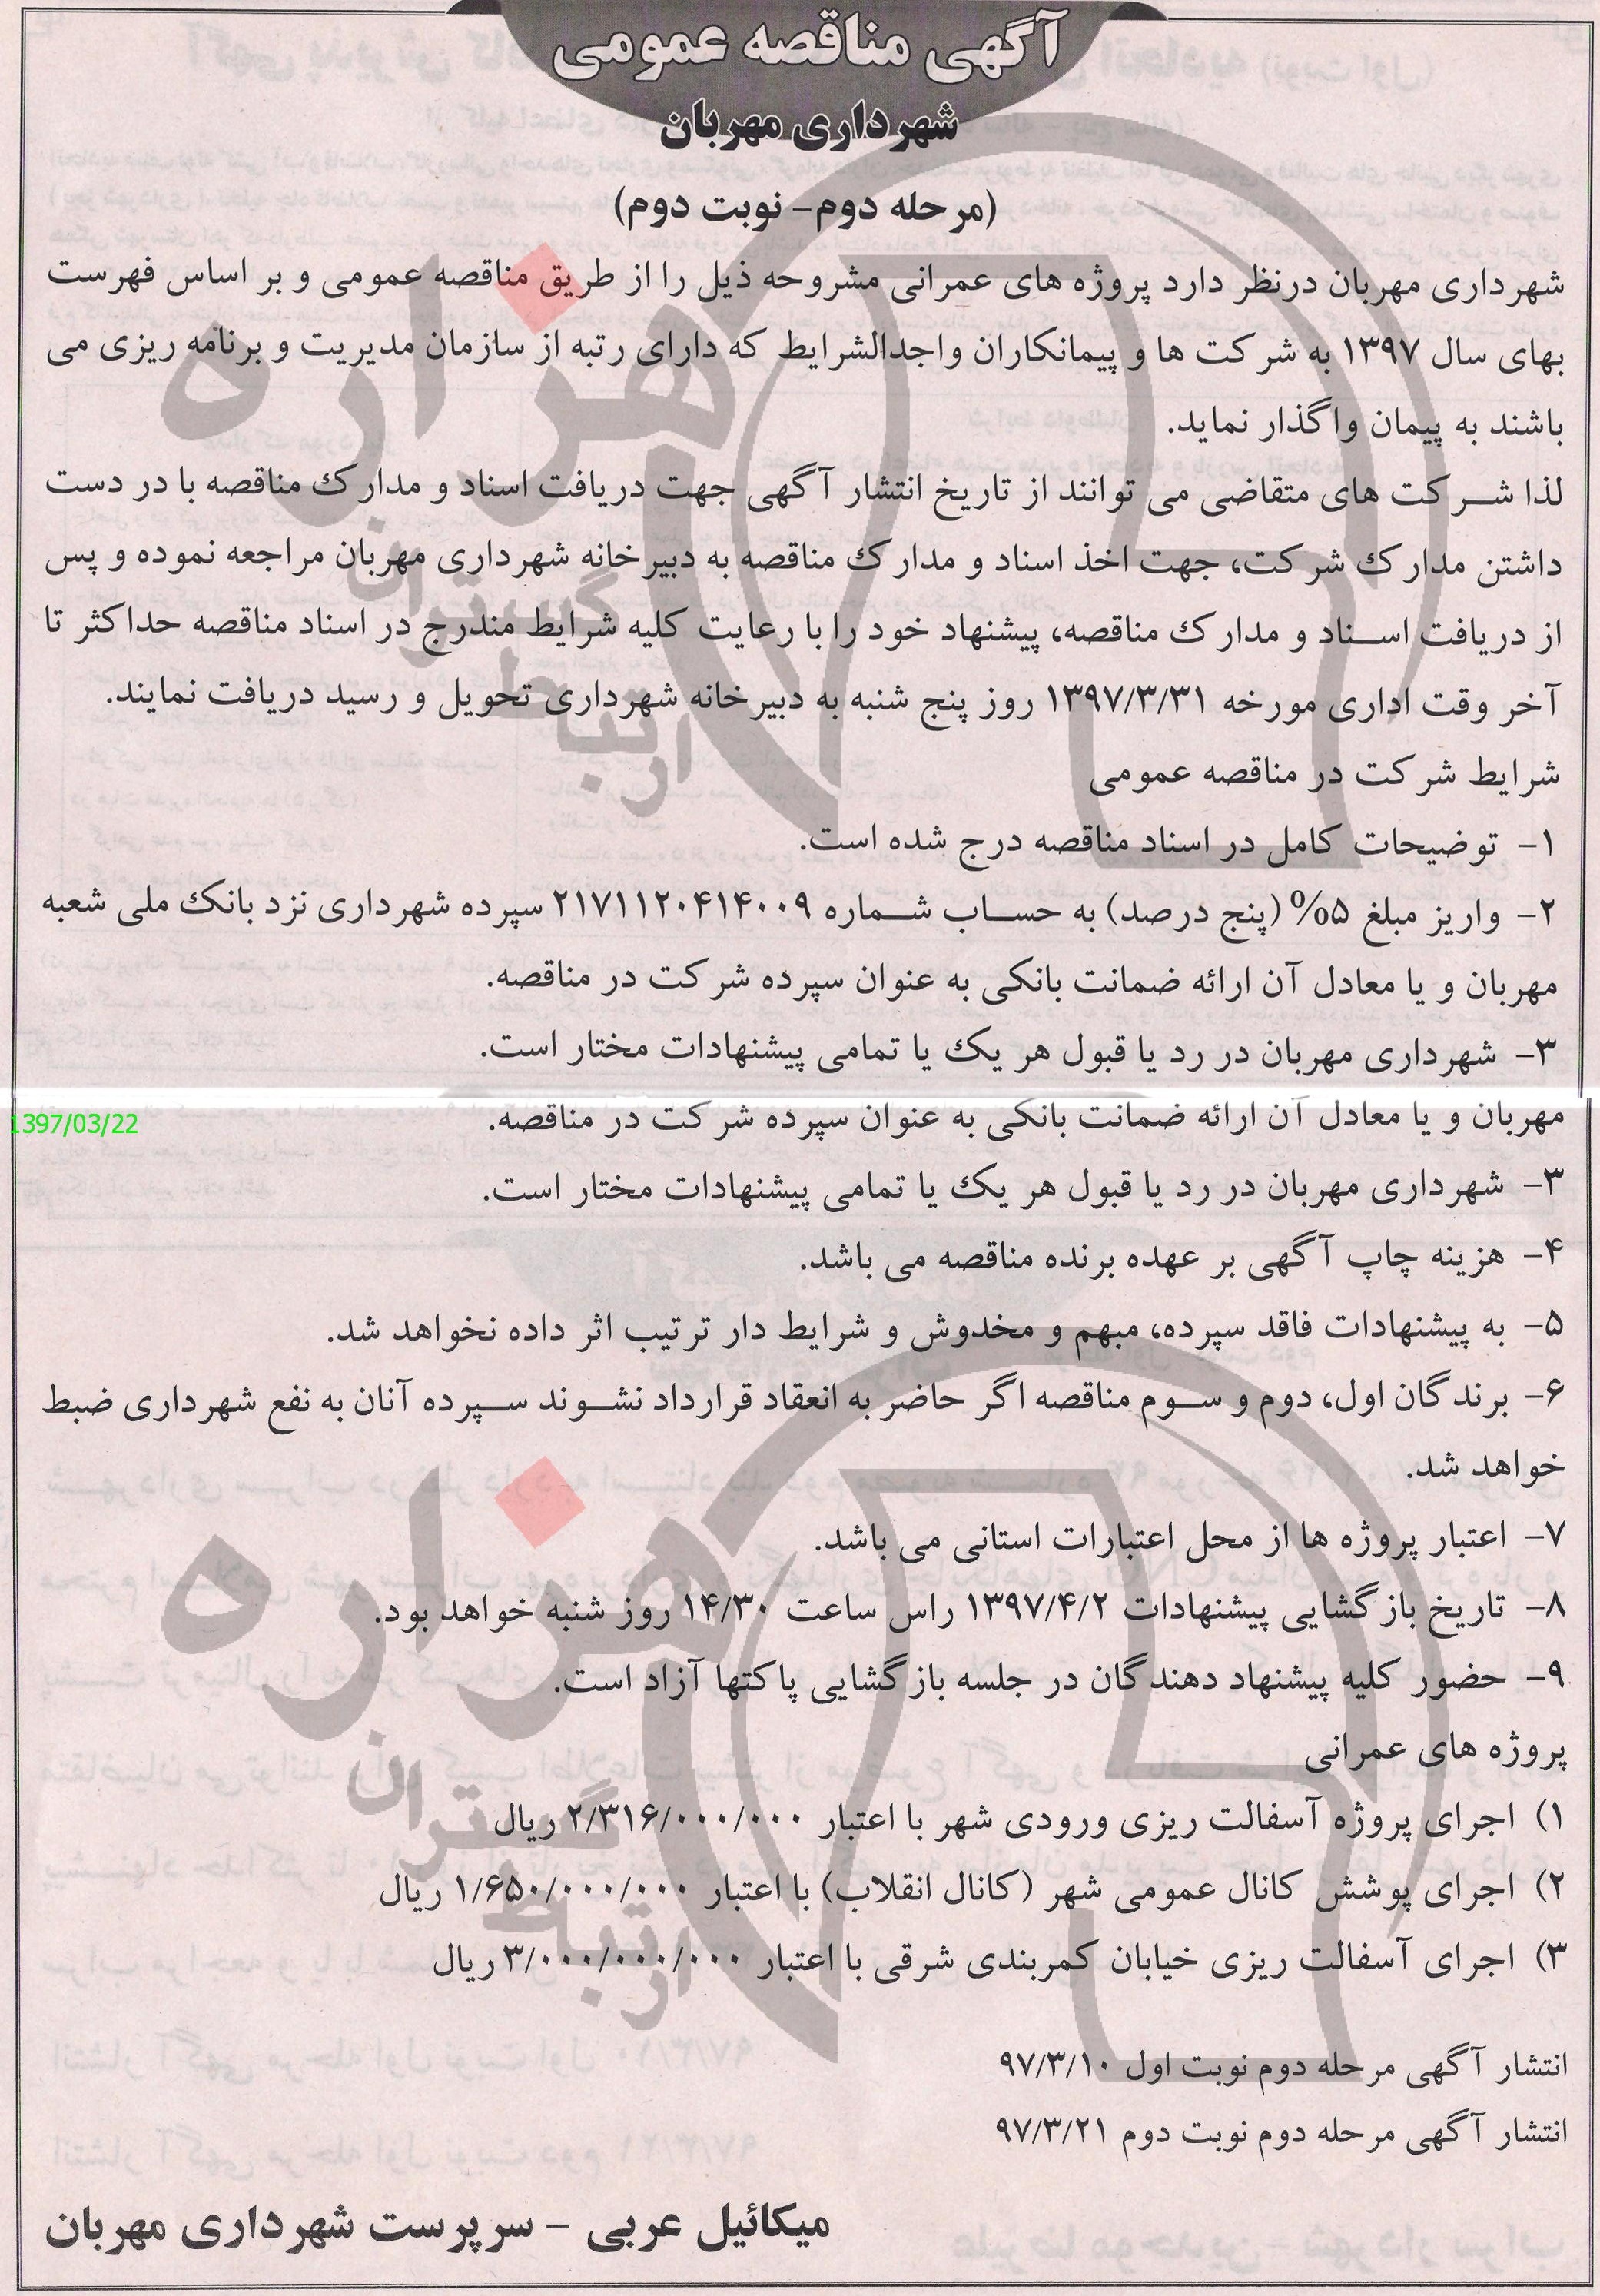 آگهی مناقصه عمومی
شهرداری مهربان
(مرحله دوم- نوبت دوم)
شهرداری مهربان درنظر دارد پروژه های عمرانی مشروحه ذیل را از طریق مناقصه عمومی و بر اساس فهرست
بهای سال ۱۳۹۷ به شرکت ها و پیمانکاران واجدالشرایط که دارای رتبه از سازمان مدیریت و برنامه ریزی می
باشند به پیمان واگذار نماید.
لذا شرکت های متقاضی می توانند از تاریخ انتشار آگهی جهت دریافت اسناد و مدارک مناقصه با در دست
داشتن مدارک شرکت، جهت اخذ اسناد و مدارک مناقصه به دبیرخانه شهرداری مهربان مراجعه نموده و پس
از دریافت اسناد و مدارک مناقصه، پیشنهاد خود را با رعایت کلیه شرایط مندرج در اسناد مناقصه حداکثر تا
آخر وقت اداری مورخه ۱۳۹۷/۳/۳۱ روز پنج شنبه به دبیرخانه شهرداری تحویل و رسید دریافت نمایند.
شرایط شرکت در مناقصه عمومی
۱- توضیحات کامل در اسناد مناقصه درج شده است.
۲- واریز مبلغ ۵% (پنج درصد) به حساب شماره ۲۱۷۱۱۲۰۴۱۴۰۰۹ سپرده شهرداری نزد بانک ملی شعبه
مهربان و یا معادل آن ارائه ضمانت بانکی به عنوان سپرده شرکت در مناقصه.
۳- شهرداری مهربان در رد یا قبول هر یک یا تمامی پیشنهادات مختار است.
1397/03/22
مهربان و یا معادل آن ارائه ضمانت بانکی به عنوان سپرده شرکت در مناقصه.
۳- شهرداری مهربان در رد یا قبول هر یک یا تمامی پیشنهادات مختار است.
۴- هزینه چاپ آگهی بر عهده برنده مناقصه می باشد.
۵- به پیشنهادات فاقد سپرده، مبهم و مخدوش و شرایط دار ترتیب اثر داده نخواهد شد.
۶- برندگان اول، دوم و سوم مناقصه اگر حاضر به انعقاد قرارداد نشوند سپرده آنان به نفع شهرداری ضبط
خواهد شد.
۷- اعتبار پروژه ها از محل اعتبارات استانی می باشد.
۸- تاریخ بازگشایی پیشنهادات ۱۳۹۷/۴/۲ راس ساعت ۱۴/۳۰ روز شنبه خواهد بود.
۹- حضور کلیه پیشنهاد دهندگان در جلسه بازگشایی پاکتها آزاد است.
پروژه های عمرانی
۱) اجرای پروژه آسفالت ریزی ورودی شهر با اعتبار ۲/۳۱۶/۰۰۰/۰۰۰ ریال
۲) اجرای پوشش کانال عمومی شهر (کانال انقلاب) با اعتبار ۱/۶۵۰/۰۰۰/۰۰۰ ریال
۳) اجرای آسفالت ریزی خیابان کمربندی شرقی با اعتبار ۳/۰۰۰/۰۰۰/۰۰۰ ریال
انتشار آگهی مرحله دوم نوبت اول ۹۷/۳/۱۰
انتشار آگهی مرحله دوم نوبت دوم ۹۷/۳/۲۱
میکائیل عربی - سرپرست شهرداری مهربان
هزاره
گستران
ارتباط
هزاره
گستران
ارتباط